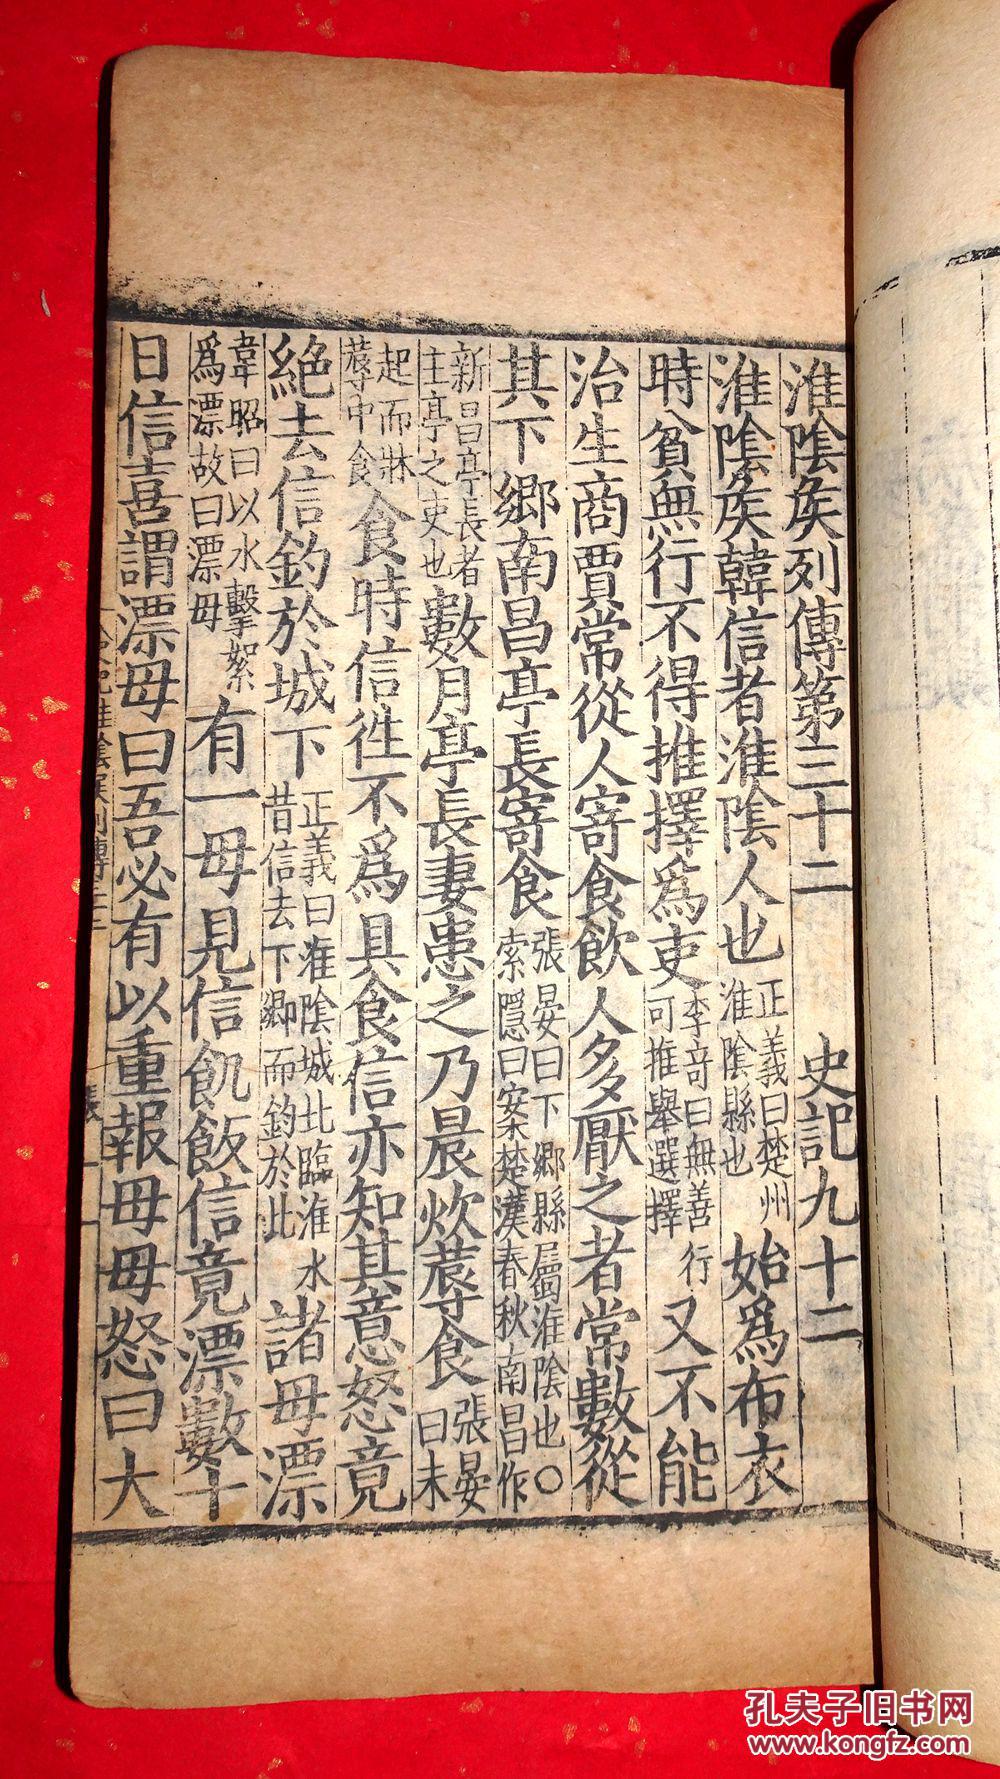 淮陰矦列傳第三十二　史記九十二
淮陰矦韓信者淮陰人也正義曰楚州淮陰縣也始爲布衣
時貧無行不得推擇爲吏李竒曰無善行可推舉選擇又不能
治生商賈常從人寄食飲人多厭之者常數從
其下鄉南昌亭長寄食張晏曰下鄉縣屬淮陰也〇索隱曰案楚漢春秋南昌作
新昌亭長者主亭之吏也數月亭長妻患之乃晨炊蓐食張晏曰未
起而牀蓐中食食時信徃不爲具食信亦知其意怒竟
絶去信釣於城下正義曰淮陰城北臨淮水昔信去下鄉而釣於此諸母漂
韋昭曰以水擊絮爲漂故曰漂母有一母見信飢飯信竟漂數十
日信喜謂漂母曰吾必有以重報母母怒曰大
孔夫子旧书网
www.kongfz.com